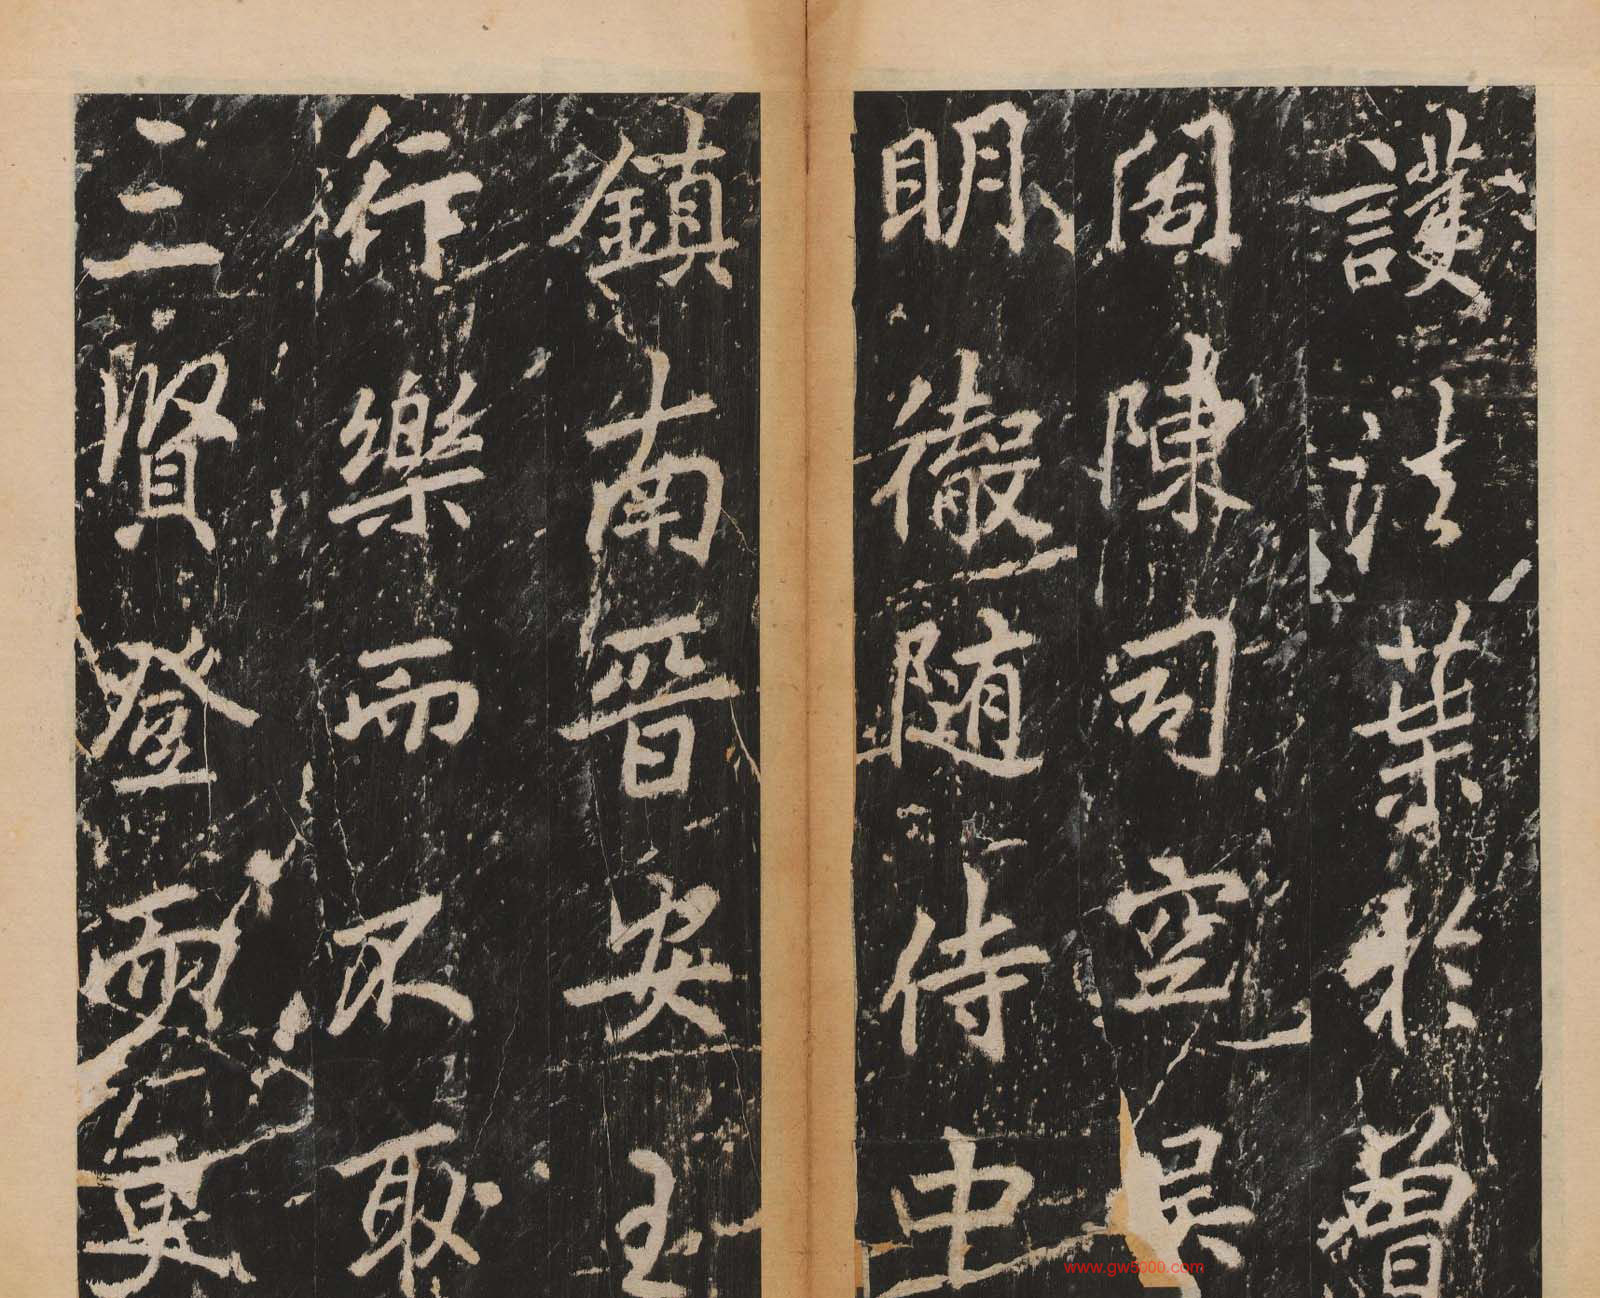 護法葉於曾
閣陳司空吳
明徹随侍中
鎮南晉安王
行樂而不取
三賢登而更
www.gw5000.com